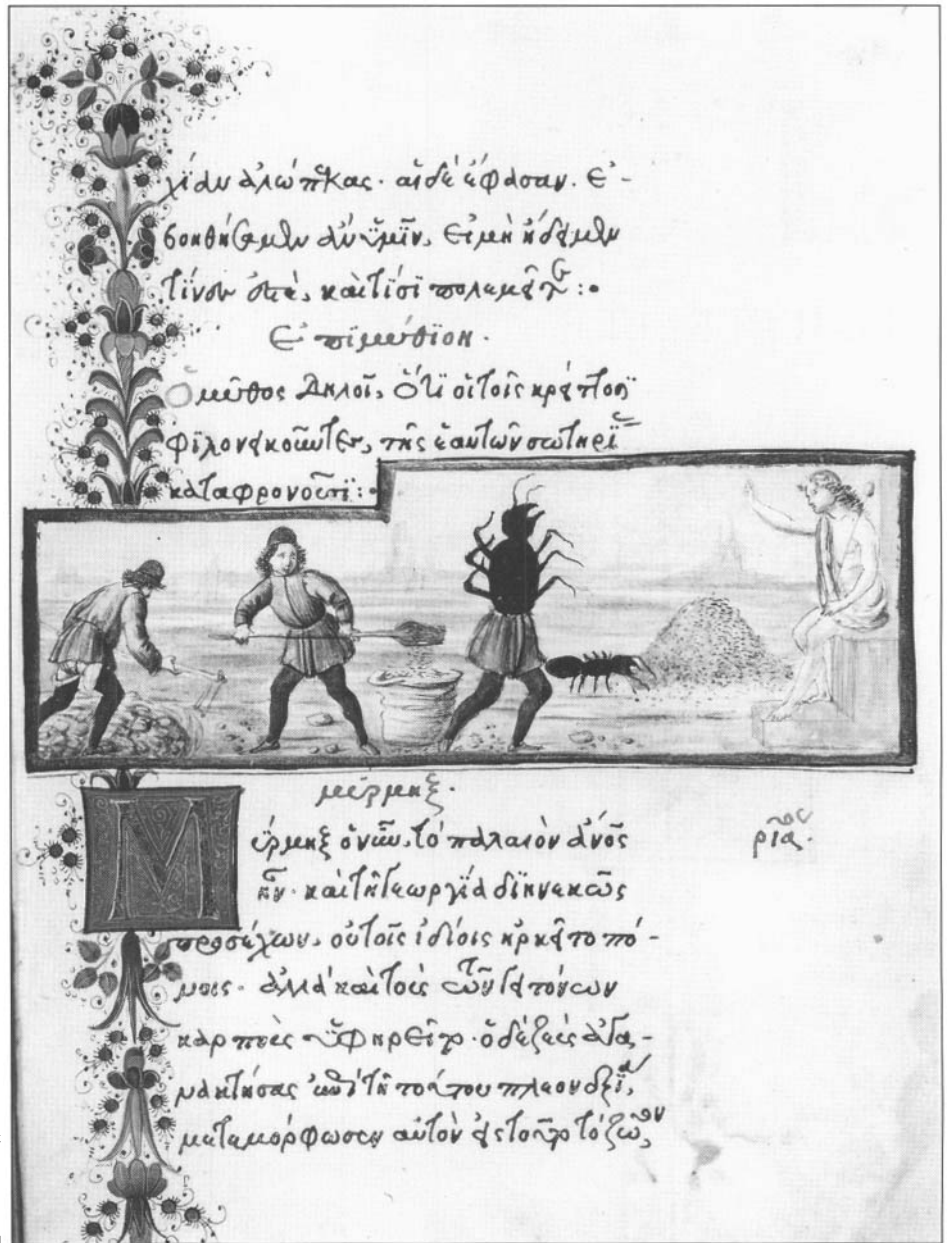 χίαν ἀλώπεκας· αἱ δὲ ἔφασαν. ἐ-
βοηθήσαμεν ἂν ὑμῖν, εἰ μὴ ᾔδειμεν
τίνες ἐστὲ, καὶ τίσι πολεμεῖτε :·
Ἐπιμύθιον.
Ὁ μῦθος δηλοῖ, ὅτι οἱ τοῖς κρείττοσι
φιλονεικοῦντες, τῆς ἑαυτῶν σωτηρίας
καταφρονοῦσι :·
μύρμηξ.
Μύρμηξ ὁ νῦν, τὸ παλαιὸν ἄνος
ἦν· καὶ τῇ γεωργίᾳ διηνεκῶς
προσέχων, οὐ τοῖς ἰδίοις ἠρκεῖτο πό-
νοις· ἀλλὰ καὶ τοὺς τῶν γειτόνων
καρποὺς ὑφῃρεῖτο· ὁ δὲ ζεὺς ἀγα-
νακτήσας ἐπὶ τῇ τούτου πλεονεξίᾳ,
μετεμόρφωσεν αὐτὸν εἰς τοῦτο τὸ ζῶον